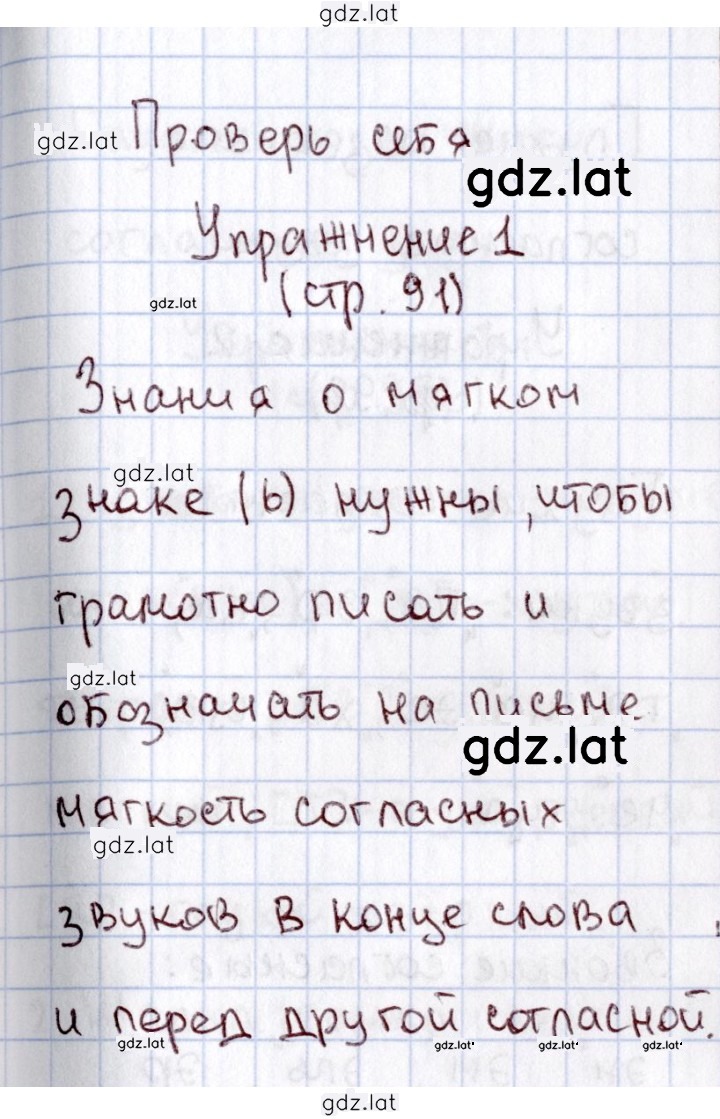 gdz.lat
Проверь себя
gdz.lat
gdz.lat
Упражнение 1
(стр. 91)
gdz.lat
Знания о мягком
gdz.lat
знаке (ь) нужны, чтобы
грамотно писать и
gdz.lat
обозначать на письме
gdz.lat
мягкость согласных
gdz.lat
звуков в конце слова
и перед другой согласной.
gdz.lat gdz.lat gdz.lat gdz.lat
gdz.lat